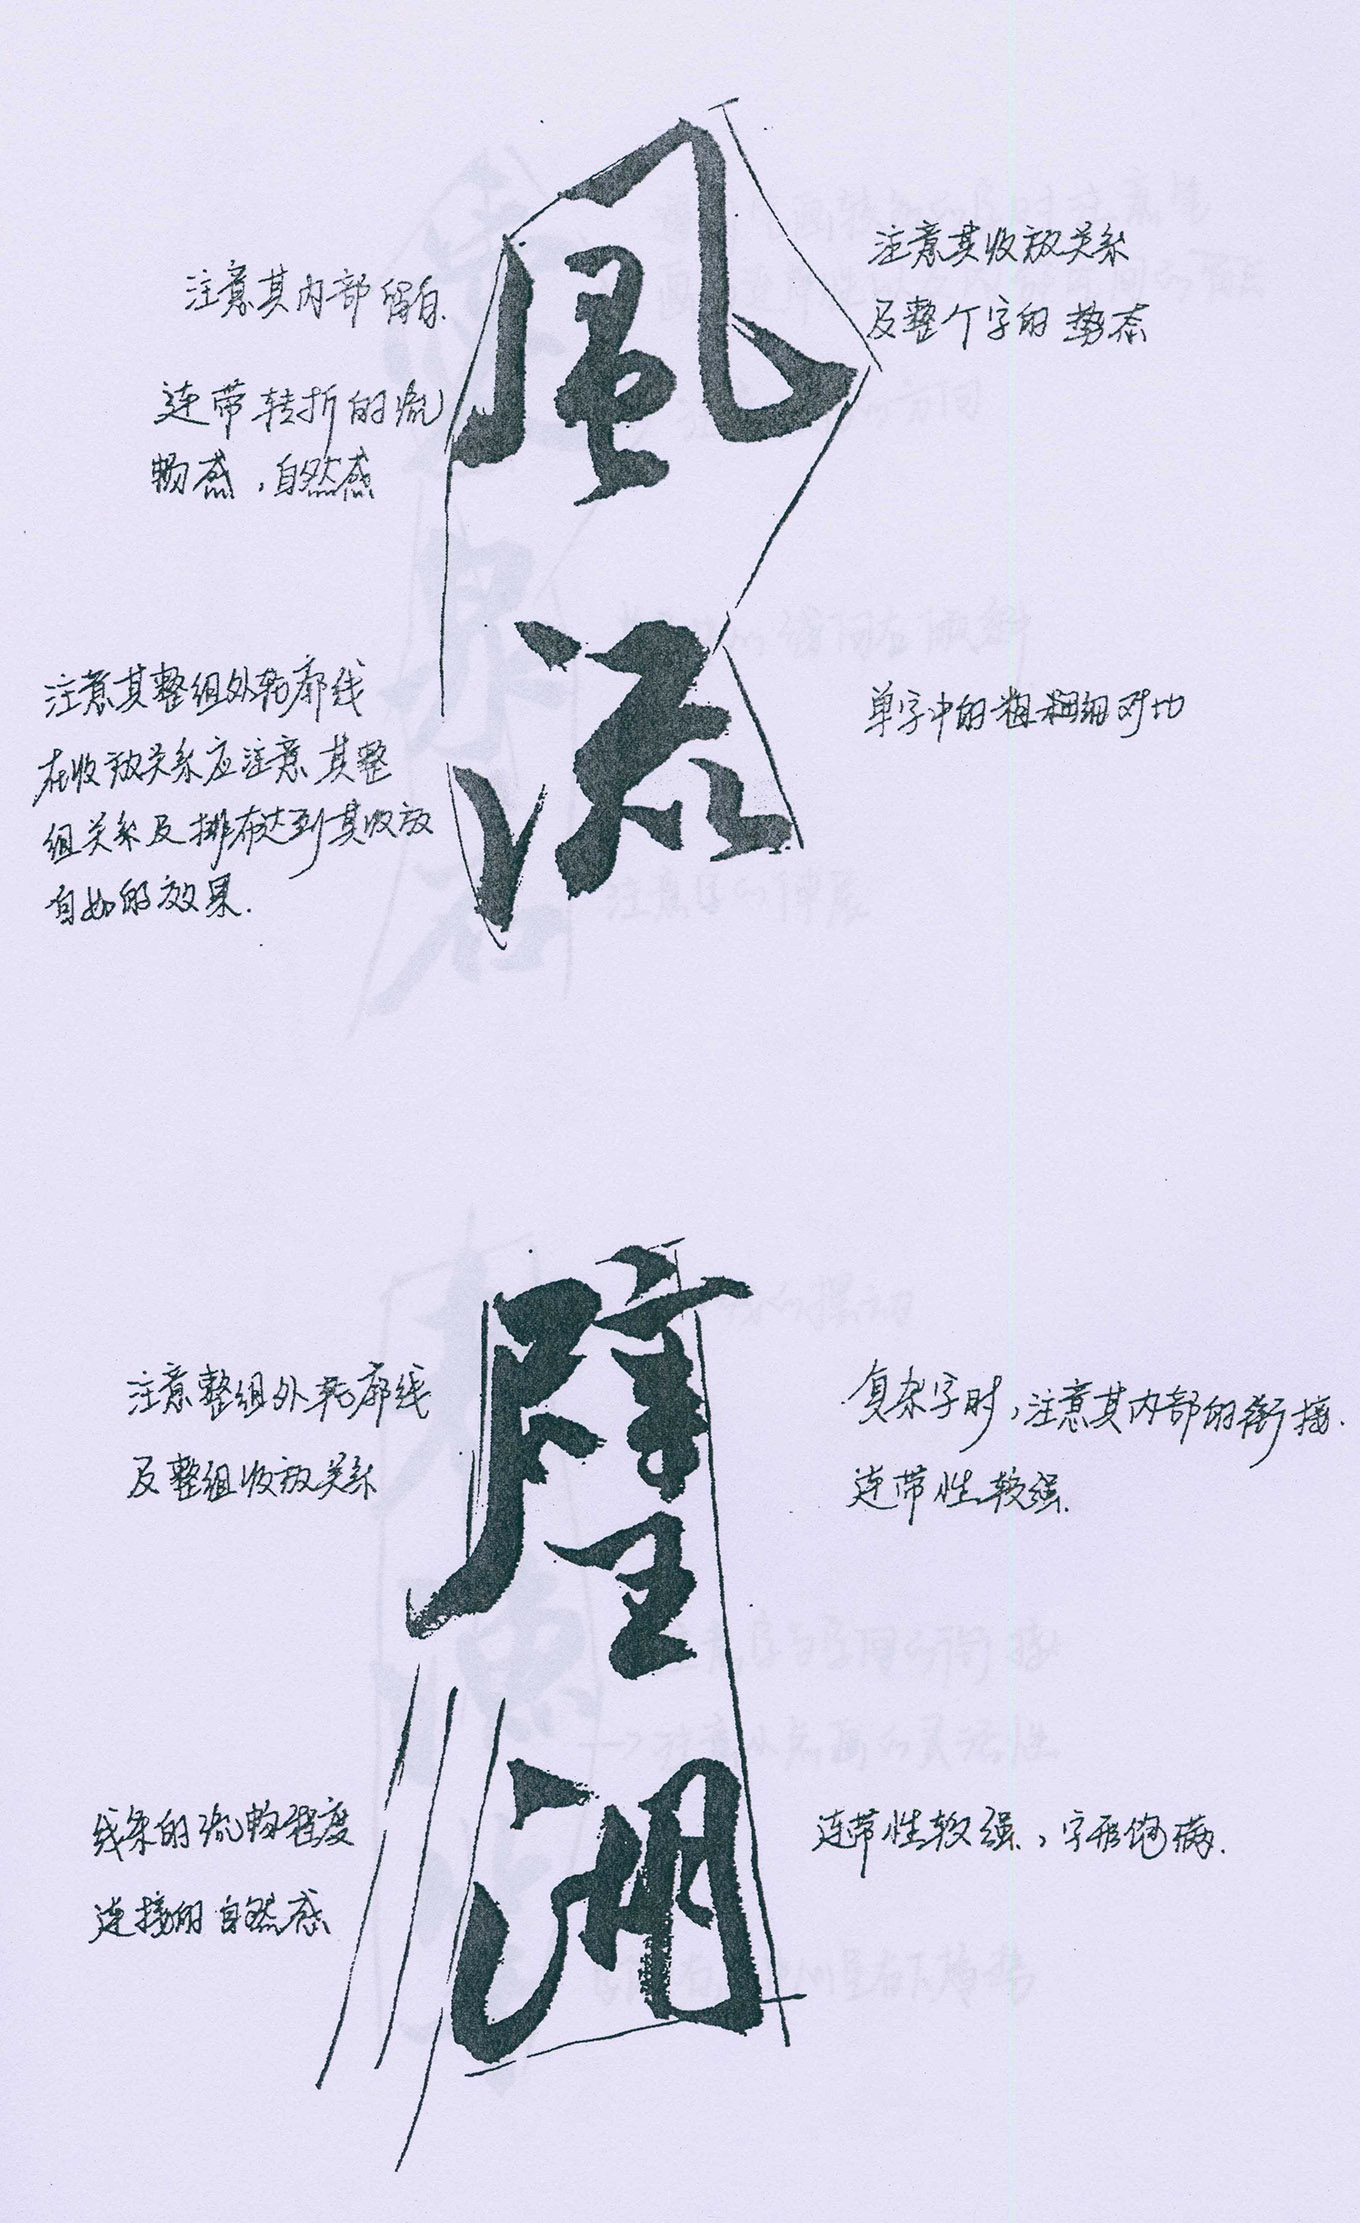 風
流
注意其内部留白.
连带转折的流
畅感，自然感
注意其收放关系
及整个字的势态
注意其整组外轮廓线
在收放关系应注意其整
组关系及排布达到其收放
自如的效果.
单字中的粗细对比
壁
湖
注意整组外轮廓线
及整组收放关系
复杂字时，注意其内部的衔接.
连带性较强.
线条的流畅程度
连接的自然感
连带性较强，字形饱满.